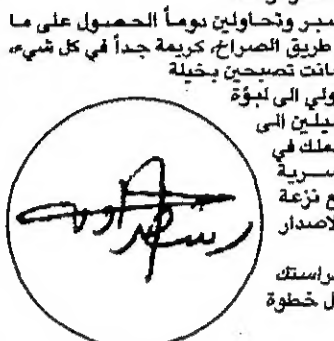 صبر وتحاولين دوماً الحصول على ما
طريق الصراخ، كريمة جداً في كل شيء،
انت تصبحين بخيلة
ولي الى لبؤة
يلين الى
ملك في
سرية
ع نزعة
لاصدار
راستك
ل خطوة